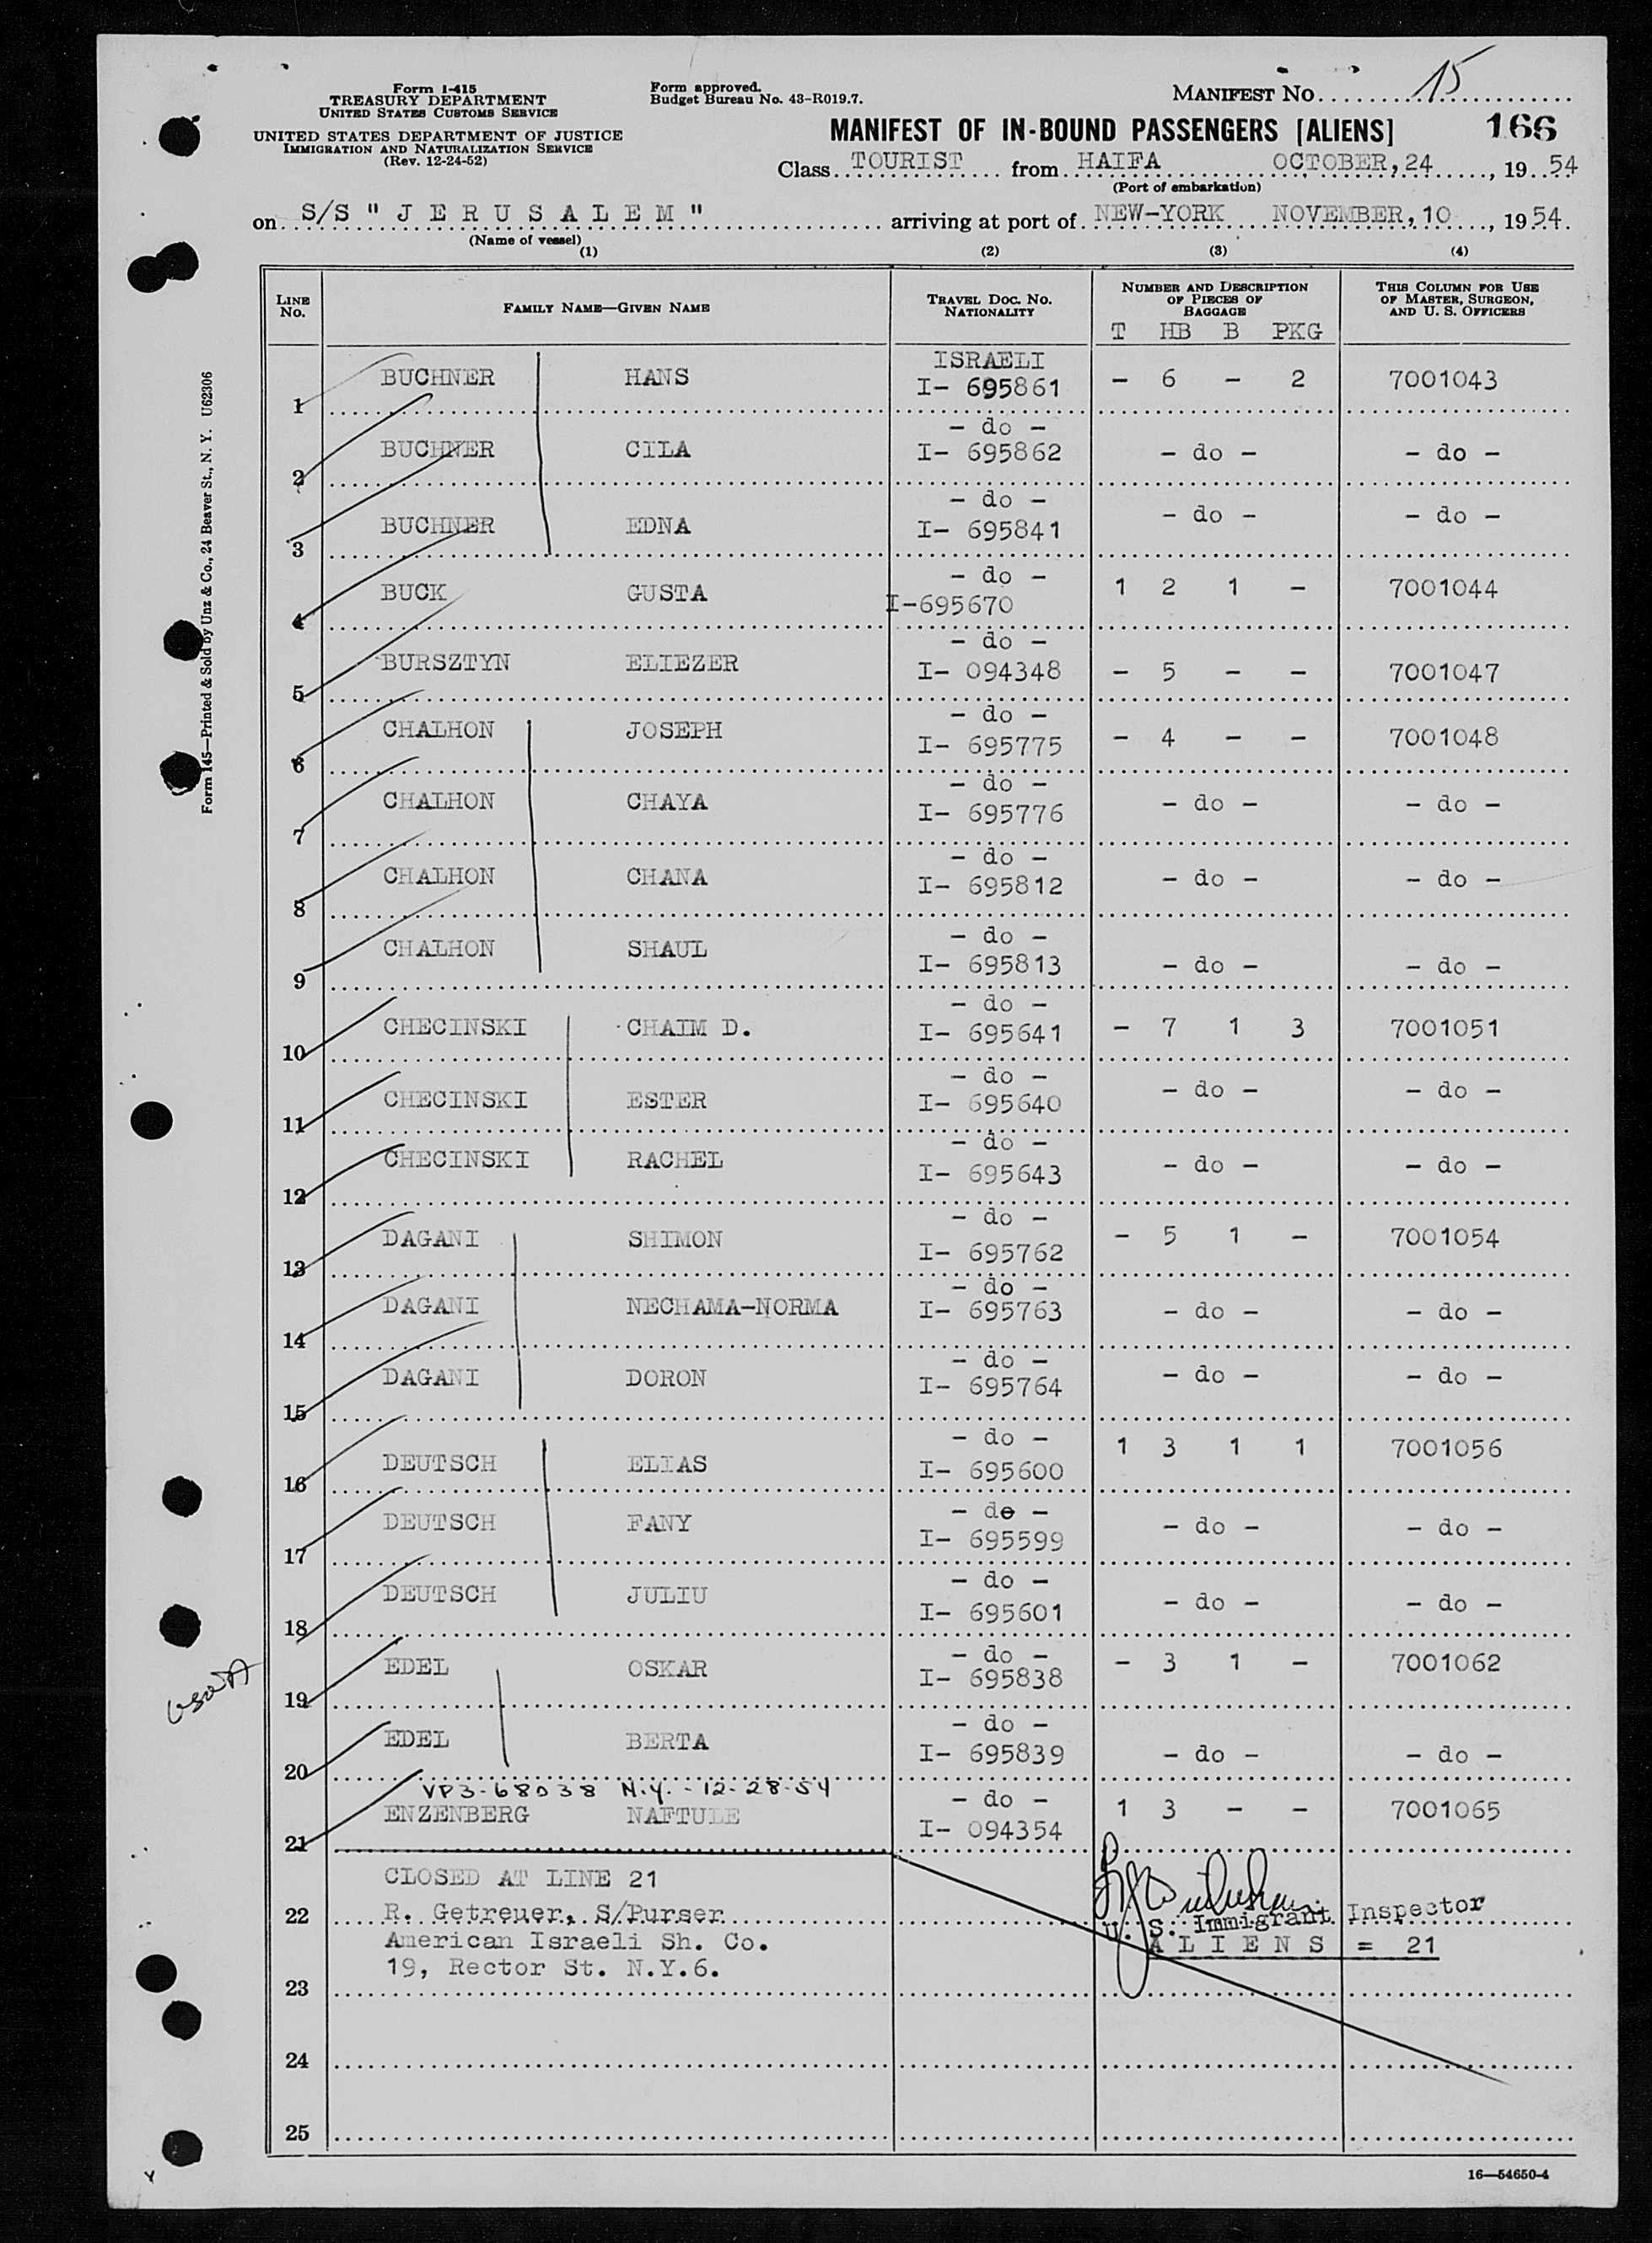 Form I-415
TREASURY DEPARTMENT
UNITED STATES CUSTOMS SERVICE
UNITED STATES DEPARTMENT OF JUSTICE
IMMIGRATION AND NATURALIZATION SERVICE
(Rev. 12-24-52)
Form approved.
Budget Bureau No. 43-R019.7.
MANIFEST NO. 15
MANIFEST OF IN-BOUND PASSENGERS [ALIENS] 166
Class TOURIST from HAIFA OCTOBER, 24, 19 54
(Port of embarkation)
on S/S "JERUSALEM" arriving at port of NEW-YORK NOVEMBER, 10, 19 54.
(Name of vessel)
(1) (2) (3) (4)
LINE NO. FAMILY NAME—GIVEN NAME TRAVEL DOC. NO. NATIONALITY NUMBER AND DESCRIPTION OF PIECES OF BAGGAGE THIS COLUMN FOR USE OF MASTER, SURGEON, AND U. S. OFFICERS
T HB B PKG
ISRAELI
1 BUCHNER HANS I- 695861 - 6 - 2 7001043
- do -
2 BUCHNER CILA I- 695862 - do - - do -
- do -
3 BUCHNER EDNA I- 695841 - do - - do -
- do -
4 BUCK GUSTA I-695670 1 2 1 - 7001044
- do -
5 BURSZTYN ELIEZER I- 094348 - 5 - - 7001047
- do -
6 CHALHON JOSEPH I- 695775 - 4 - - 7001048
- do -
7 CHALHON CHAYA I- 695776 - do - - do -
- do -
8 CHALHON CHANA I- 695812 - do - - do -
- do -
9 CHALHON SHAUL I- 695813 - do - - do -
- do -
10 CHECINSKI CHAIM D. I- 695641 - 7 1 3 7001051
- do -
11 CHECINSKI ESTER I- 695640 - do - - do -
- do -
12 CHECINSKI RACHEL I- 695643 - do - - do -
- do -
13 DAGANI SHIMON I- 695762 - 5 1 - 7001054
- do -
14 DAGANI NECHAMA-NORMA I- 695763 - do - - do -
- do -
15 DAGANI DORON I- 695764 - do - - do -
- do -
16 DEUTSCH ELIAS I- 695600 1 3 1 1 7001056
- do -
17 DEUTSCH FANY I- 695599 - do - - do -
- do -
18 DEUTSCH JULIU I- 695601 - do - - do -
- do -
19 EDEL OSKAR I- 695838 - 3 1 - 7001062
- do -
20 EDEL BERTA I- 695839 - do - - do -
VP3-68038 N.Y. - 12-28-54
- do -
21 ENZENBERG NAFTULE I- 094354 1 3 - - 7001065
CLOSED AT LINE 21
22 R. Getreuer, S/Purser U. S. Immigrant Inspector
American Israeli Sh. Co. ALIENS = 21
19, Rector St. N.Y.6.
23
24
25
16—54650-4
Form 145—Printed & Sold by Unz & Co., 24 Beaver St., N. Y. U62306